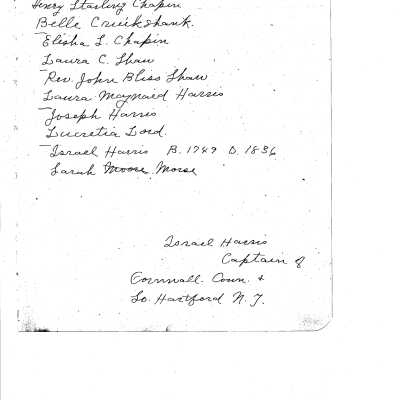 Henry Starling Chapin
Belle Cruickshank.
Elisha L. Chapin
Laura C. Shaw
Rev John Bliss Shaw
Laura Maynard Harris
Joseph Harris
Lucretia Lord.
Israel Harris B. 1749 D. 1836
Sarah Moore Morse
Israel Harris
Captain of
Cornwall. Conn. &
So. Hartford N. Y.